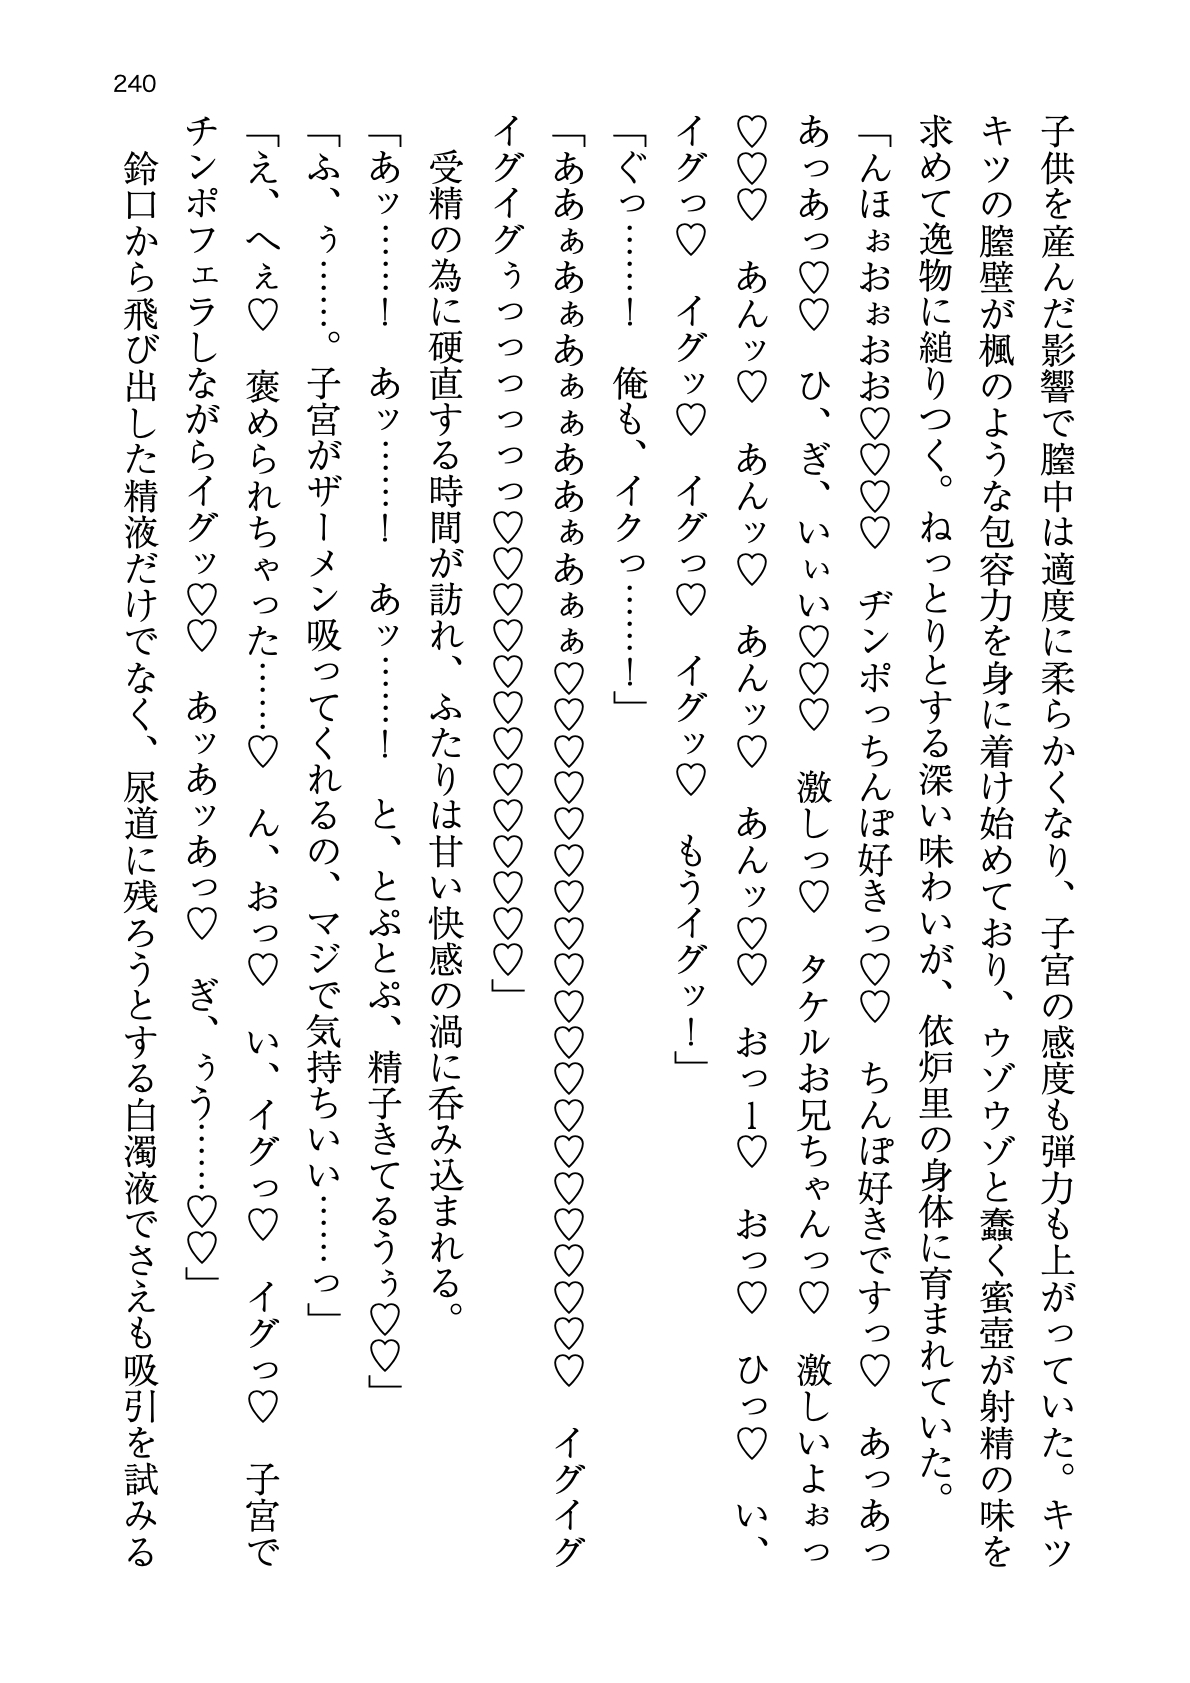 240
子供を産んだ影響で膣中は適度に柔らかくなり、子宮の感度も弾力も上がっていた。キツ
キツの膣壁が楓のような包容力を身に着け始めており、ウゾウゾと蠢く蜜壺が射精の味を
求めて逸物に縋りつく。ねっとりとする深い味わいが、依炉里の身体に育まれていた。
「んほぉおぉおお♡♡♡♡　ヂンポっちんぽ好きっ♡♡　ちんぽ好きですっ♡　あっあっ
あっあっ♡♡　ひ、ぎ、いぃい♡♡♡　激しっ♡　タケルお兄ちゃんっ♡　激しいよぉっ
♡♡♡　あんッ♡　あんッ♡　あんッ♡　あんッ♡♡　おっー♡　おっ♡　ひっ♡　い、
イグっ♡　イグッ♡　イグっ♡　イグッ♡　もうイグッ！」
「ぐっ……！　俺も、イクっ……！」
「ああぁあぁあぁぁああぁあぁぁ♡♡♡♡♡♡♡♡♡♡♡♡♡♡♡♡♡♡♡♡　イグイグ
イグイグぅっっっっっっ♡♡♡♡♡♡♡♡♡♡♡♡♡」
　受精の為に硬直する時間が訪れ、ふたりは甘い快感の渦に呑み込まれる。
「あッ……！　あッ……！　あッ……！　と、とぷとぷ、精子きてるうぅ♡♡」
「ふ、ぅ……。子宮がザーメン吸ってくれるの、マジで気持ちいい……っ」
「え、へぇ♡　褒められちゃった……♡　ん、おっ♡　い、イグっ♡　イグっ♡　子宮で
チンポフェラしながらイグッ♡♡　あッあッあっ♡　ぎ、ぅう……♡♡」
　鈴口から飛び出した精液だけでなく、尿道に残ろうとする白濁液でさえも吸引を試みる